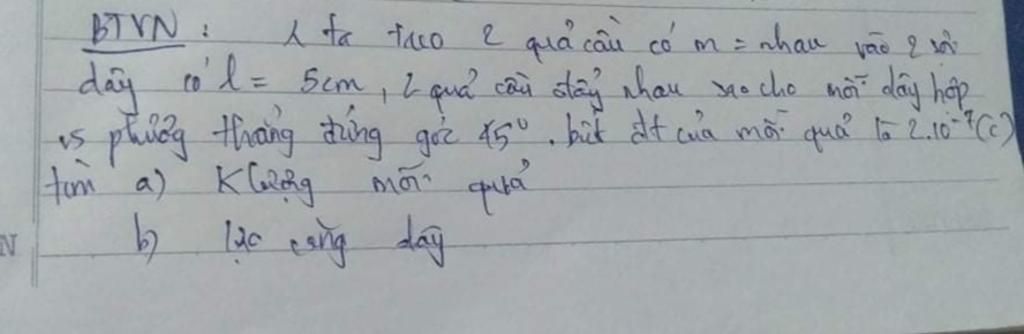 BTVN : 1 ta treo 2 quả cầu có m = nhau vào 2 sợi
dây có l = 5cm, 2 quả cầu đẩy nhau sao cho mỗi dây hợp
vs phương thẳng đứng góc 45°. biết đt của mỗi quả là 2.10⁻⁷(C)
tìm a) Klượng mỗi quả
b) lực căng dây
N